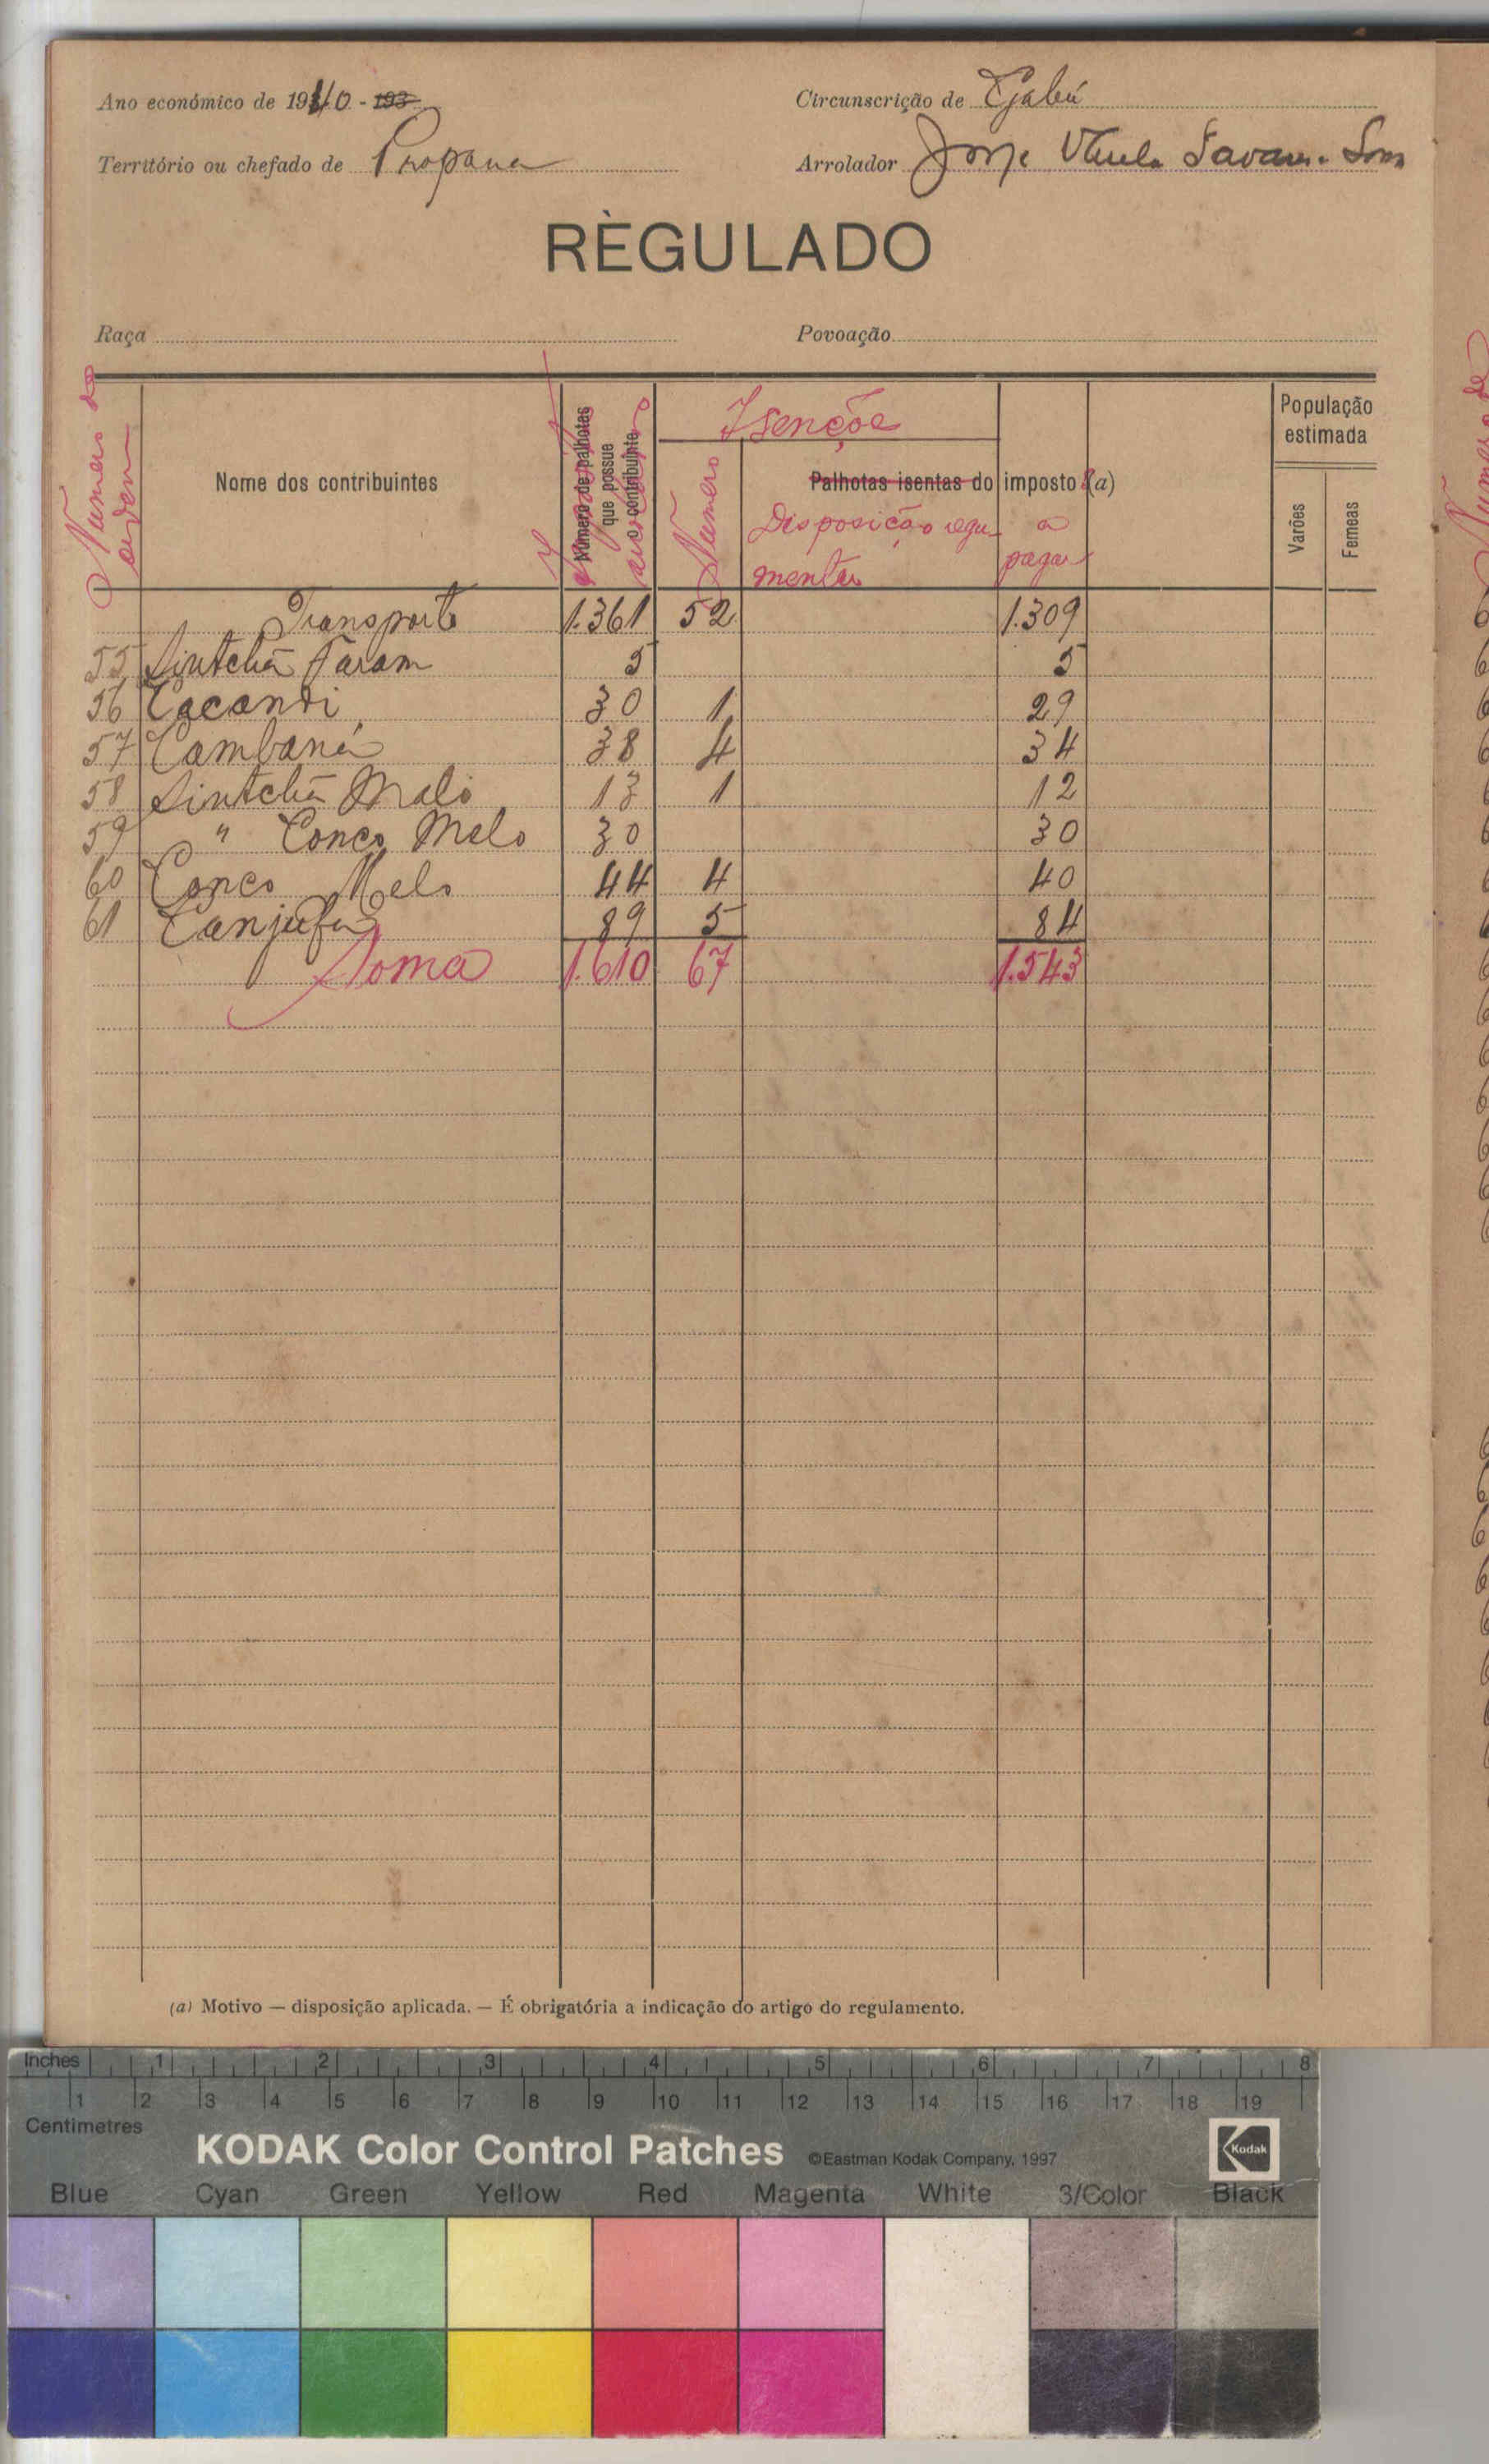 Ano económico de 1940 - 193
Circunscrição de Gabú
Território ou chefado de Propana
Arrolador Jorge
RÈGULADO
Raça
Povoação
Numero de ordem
Nome dos contribuintes
Número de palhotas que possue o contribuinte
Isenções
Numero
Palhotas isentas do imposto (a)
Disposição regu-
mentar
a
pagar
População
estimada
Varões
Femeas
Transporte 1.361 52 1.309
55 Sintchã Faram 5 5
56 Cacandi 30 1 29
57 Cambaná 38 4 34
58 Sintchã Malo 13 1 12
59 " Conco Melo 30 30
60 Conco Melo 44 4 40
61 Canjufa 89 5 84
Soma 1.610 67 1.543
(a) Motivo — disposição aplicada. — É obrigatória a indicação do artigo do regulamento.
Inches 1 2 3 4 5 6 7 8
1 2 3 4 5 6 7 8 9 10 11 12 13 14 15 16 17 18 19
Centimetres
KODAK Color Control Patches ©Eastman Kodak Company, 1997 Kodak
Blue Cyan Green Yellow Red Magenta White 3/Color Black